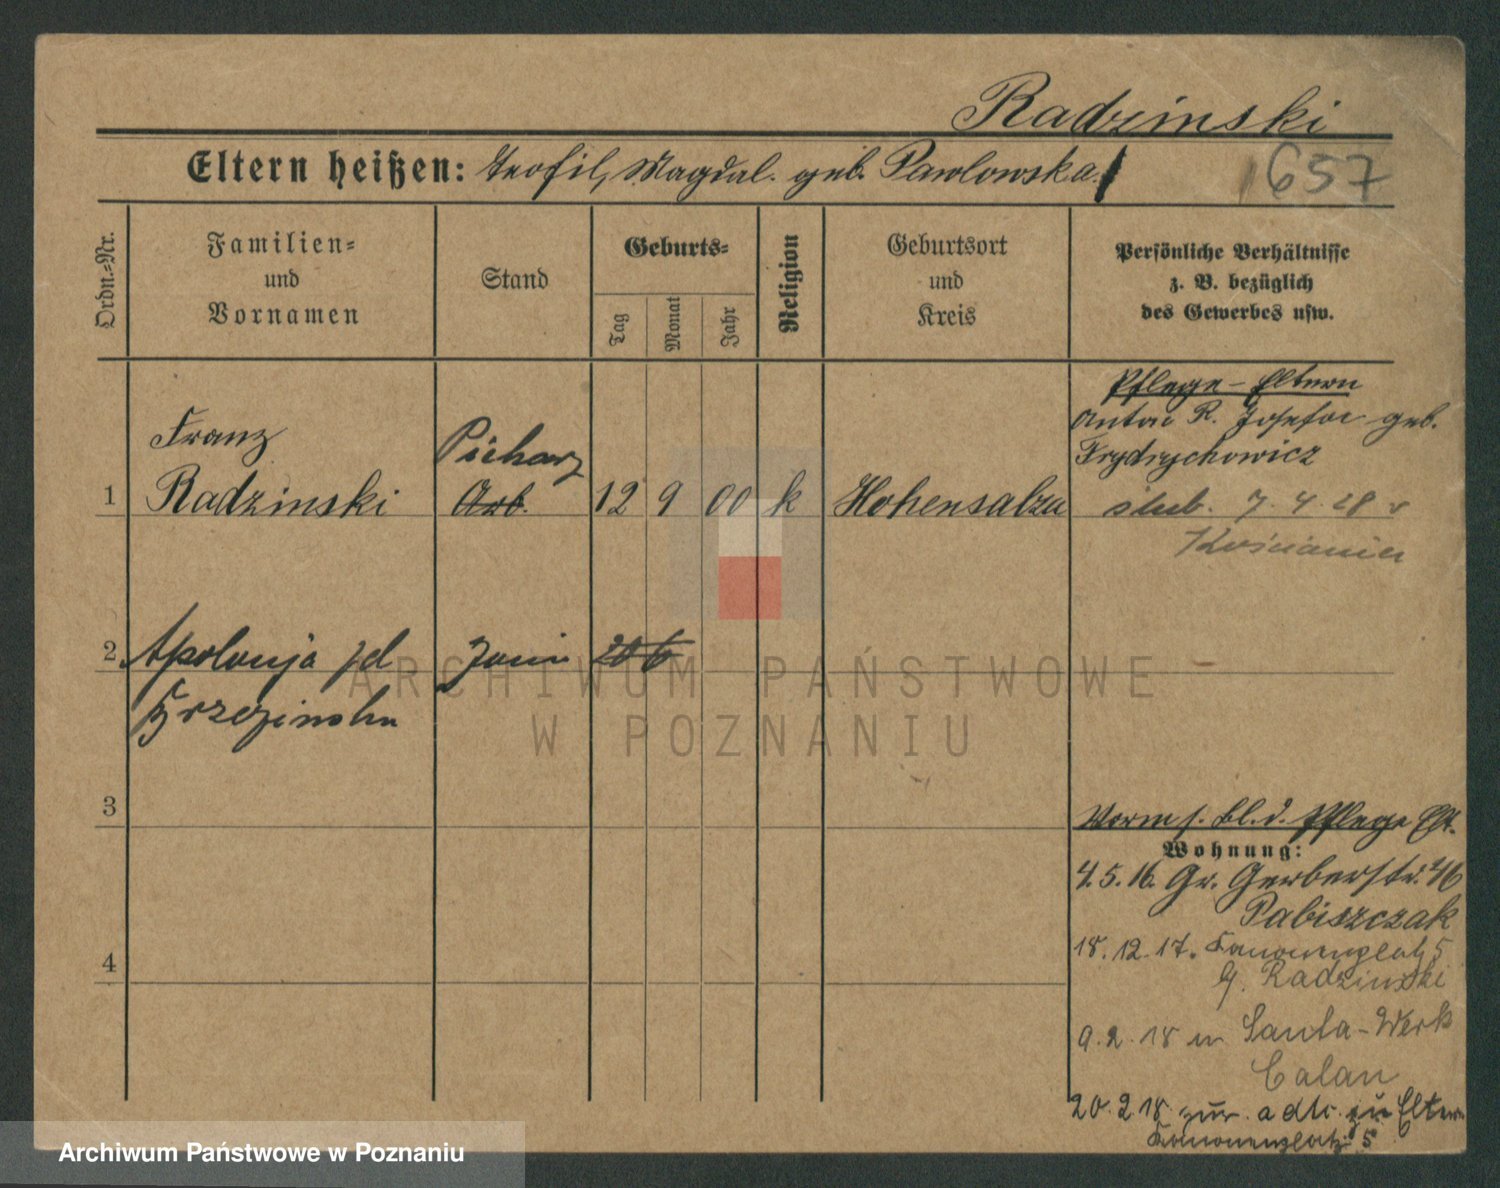 Radzinski
Eltern heißen: Teofil, Magdal. geb. Pawlowska
657
Ordn.=Nr.
Familien=
und
Vornamen
Stand
Geburts=
Tag
Monat
Jahr
Religion
Geburtsort
und
Kreis
Persönliche Verhältnisse
z. B. bezüglich
des Gewerbes usw.
1
Franz
Radzinski
Piekarz
Arb.
12 9 00 k
Hohensalza
Pflege-Eltern
Anton R. Josefa geb.
Frydrychowicz
slub. 7.4.28 v
2
Apolonja
20 6
3
4
Vorm s. Bl. d. Pflege Elt.
Wohnung:
4.5.16. Gr. Gerberstr. 46
Pabiszczak
18.12.17. Kanonenplatz 5
Radzinski
9.2.18 n Santa-Werk
Calau
20.2.18 zur. zu Eltern
Kanonenplatz 5
ARCHIWUM PAŃSTWOWE
W POZNANIU
Archiwum Państwowe w Poznaniu